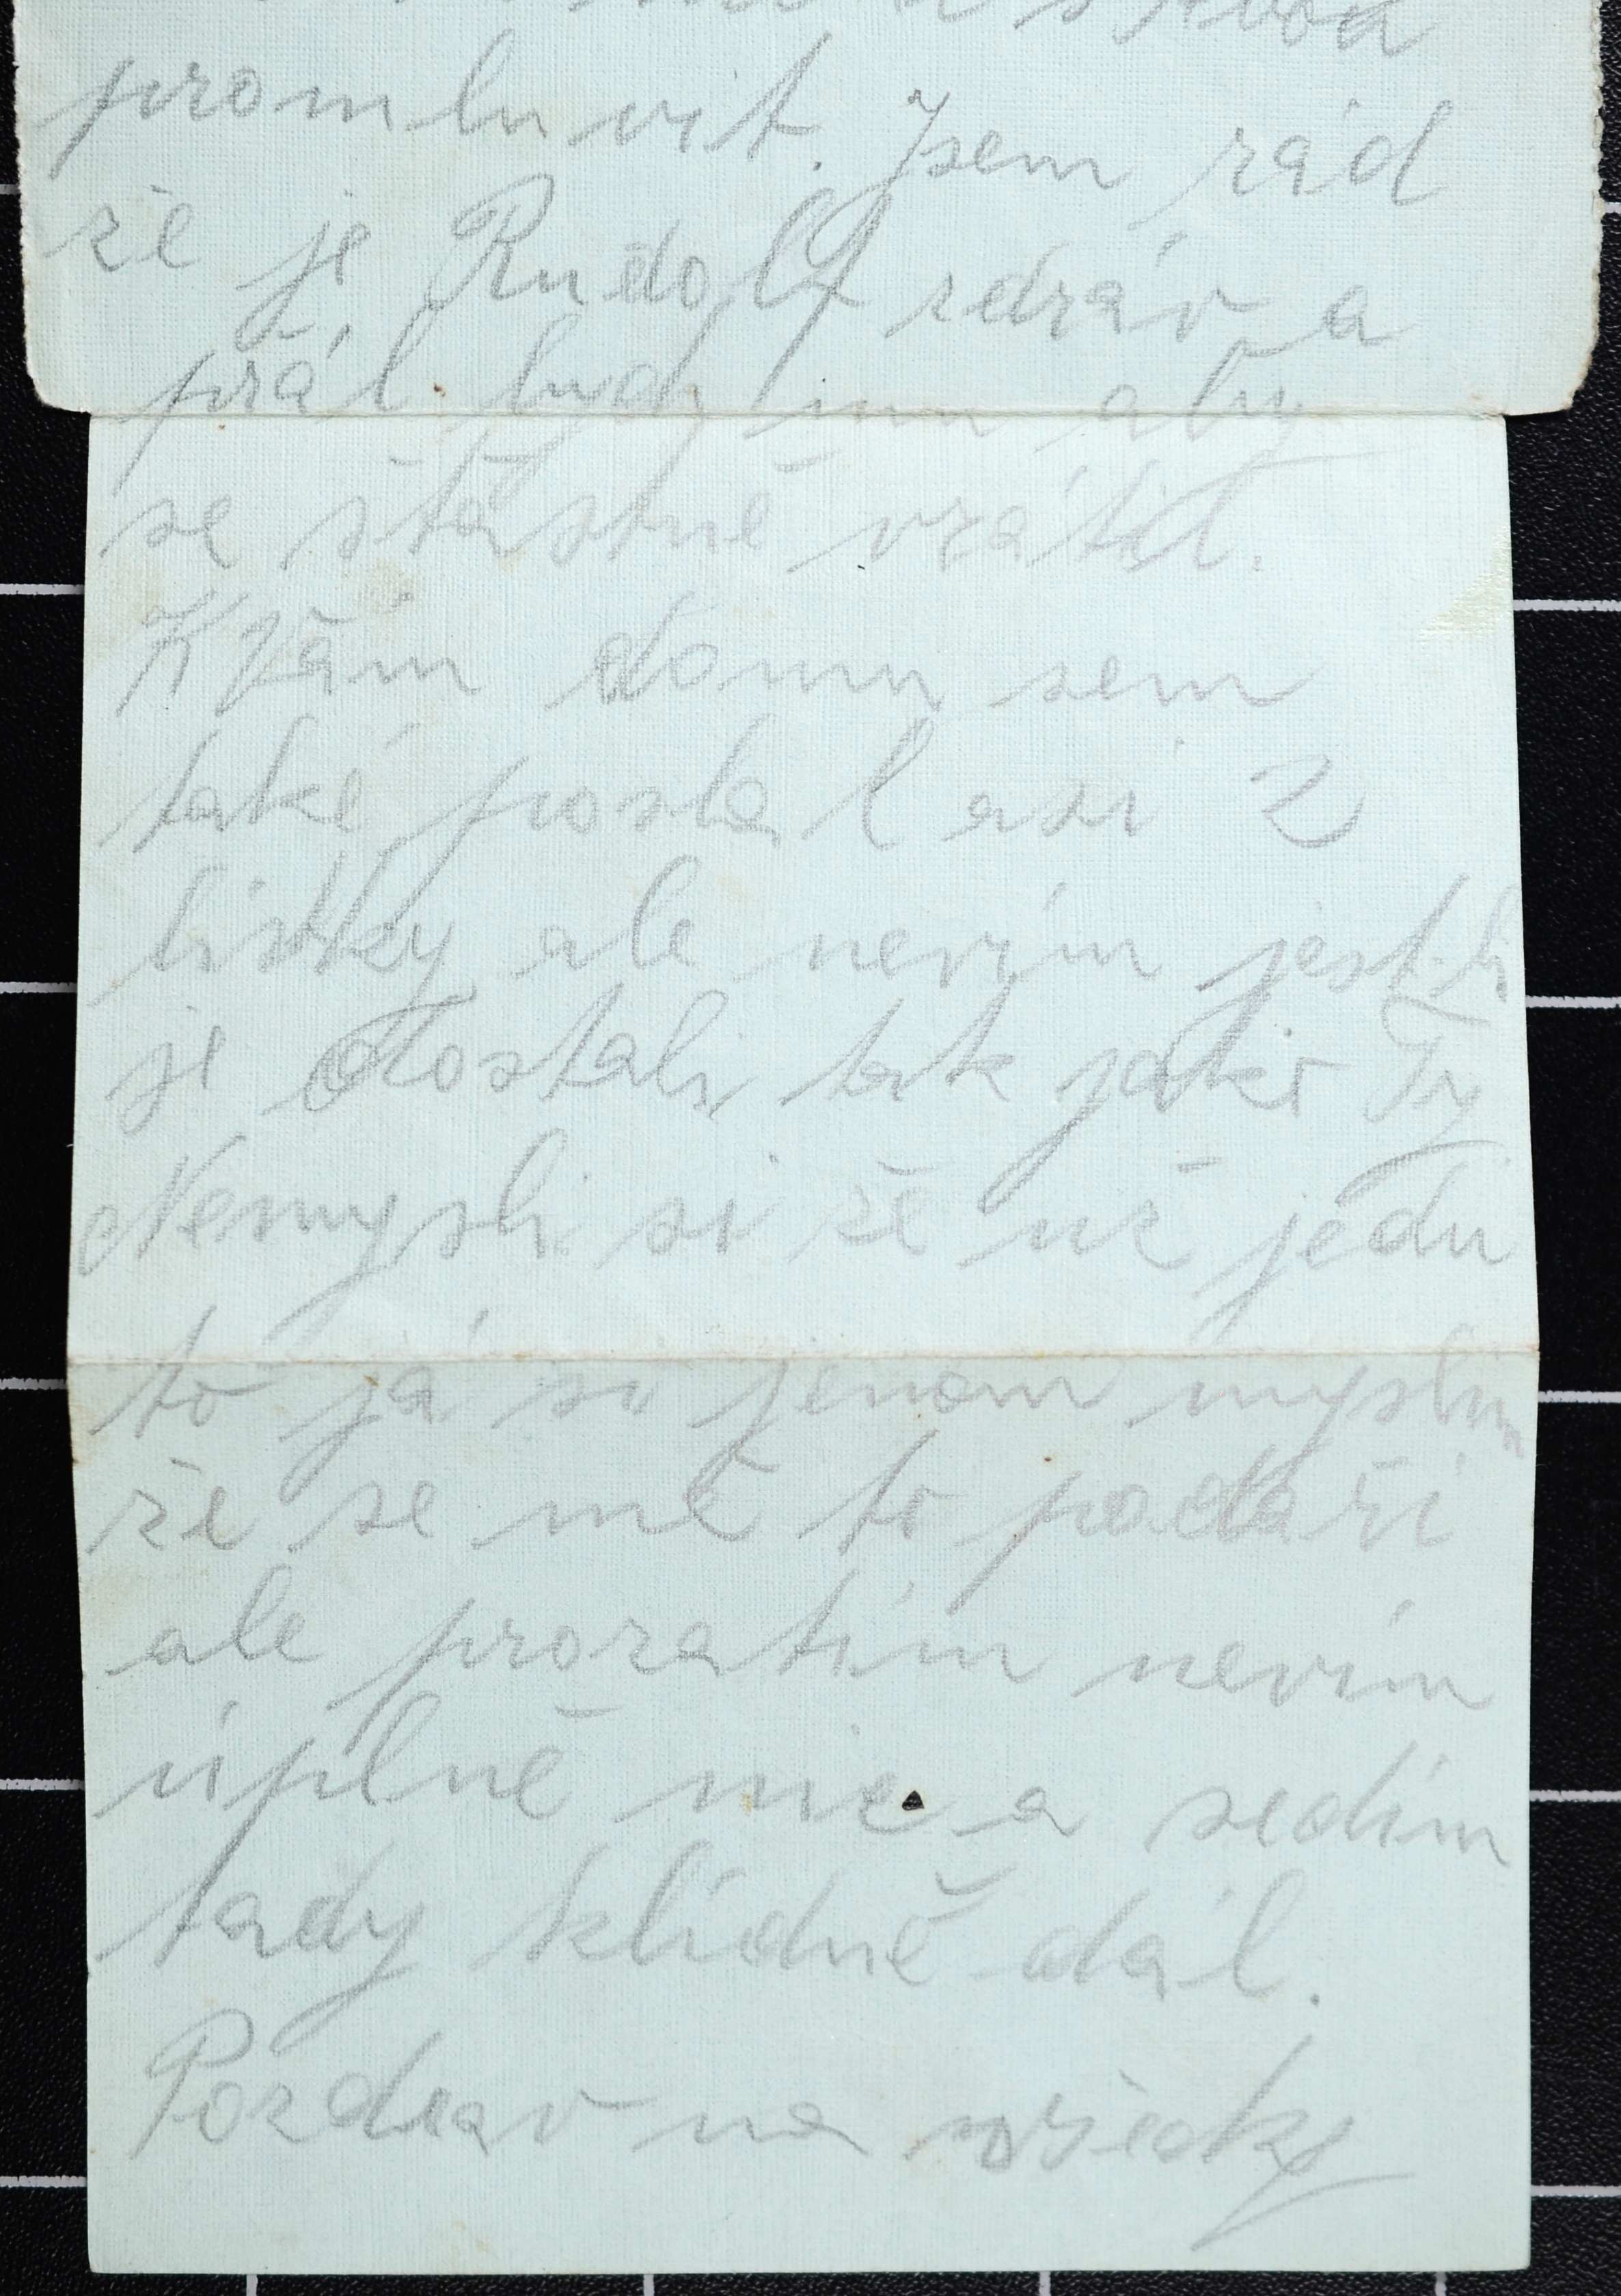 promluvit. Jsem rád
že je Rudolf zdráv a
přál bych mu aby
se štastně vrátil.
K Vám domu sem
také poslal asi 2
lístky ale nevím jest-li
je dostali tak jako Ty
Nemysli si že už jedu
to já si jenom myslim
že se mě to podaři
ale prozatím nevím
úplně nic a sedím
tady klídně dál.
Pozdrav na všecky